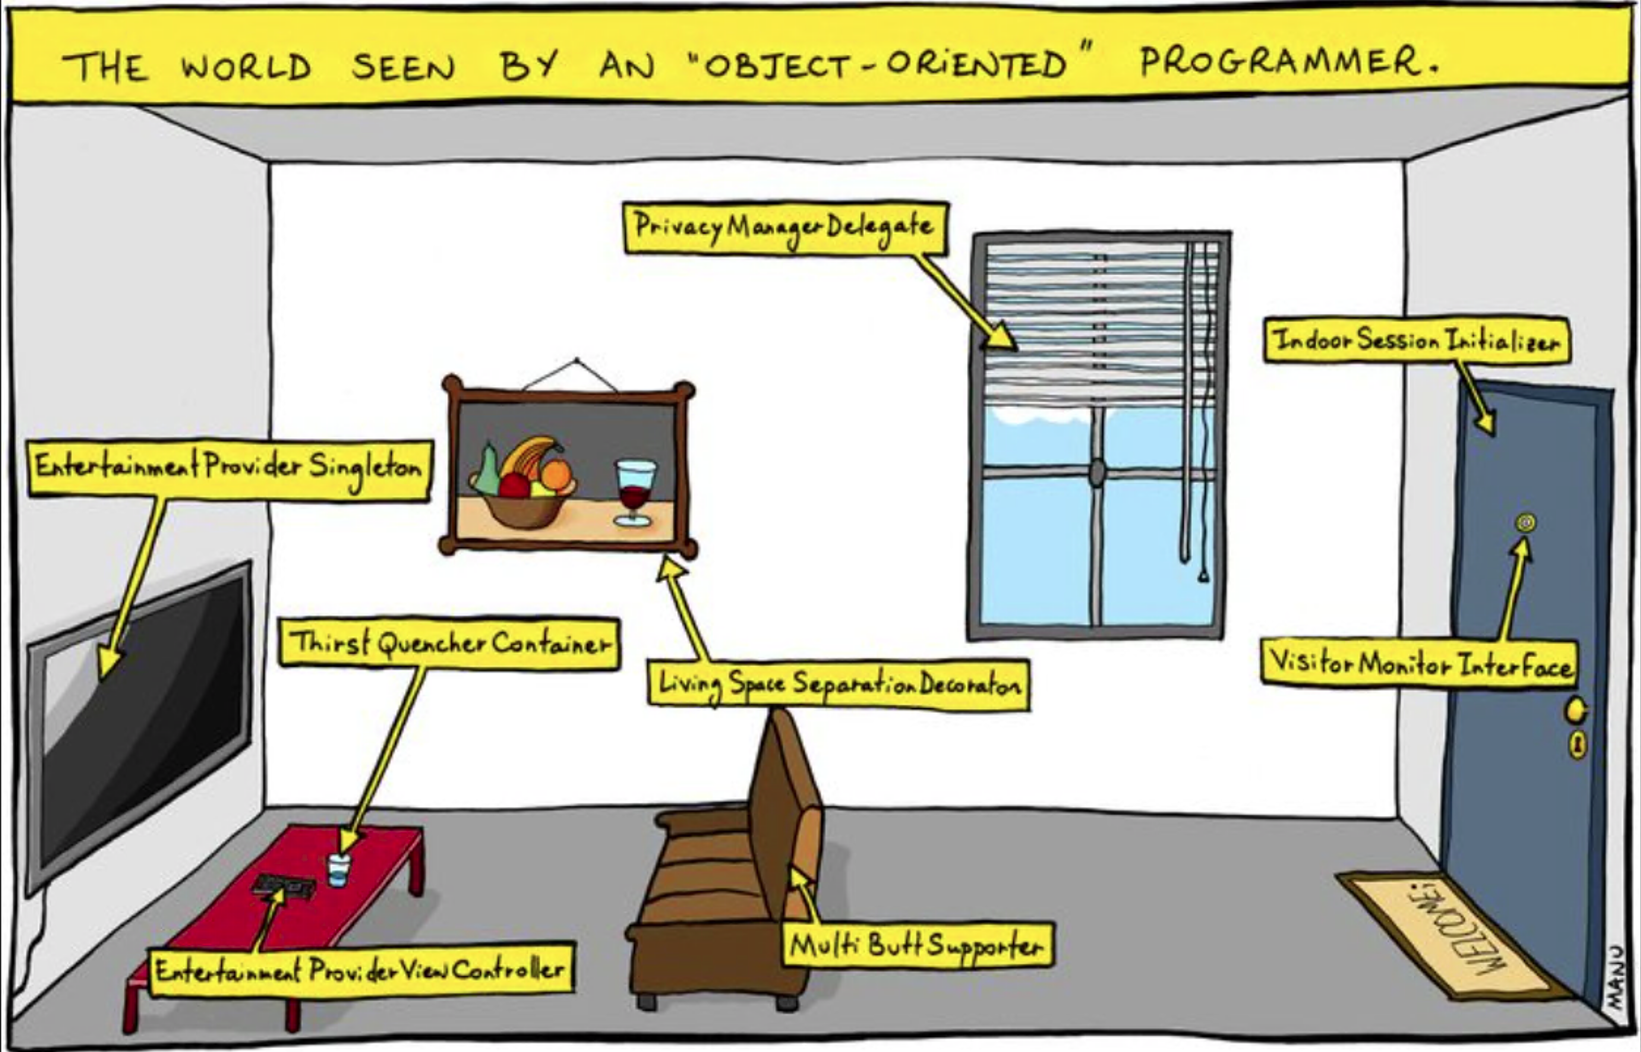 THE WORLD SEEN BY AN "OBJECT-ORIENTED" PROGRAMMER.
PrivacyManagerDelegate
IndoorSessionInitializer
EntertainmentProviderSingleton
ThirstQuencherContainer
VisitorMonitorInterface
LivingSpaceSeparationDecorator
MultiButtSupporter
EntertainmentProviderViewController
WELCOME!
MANU